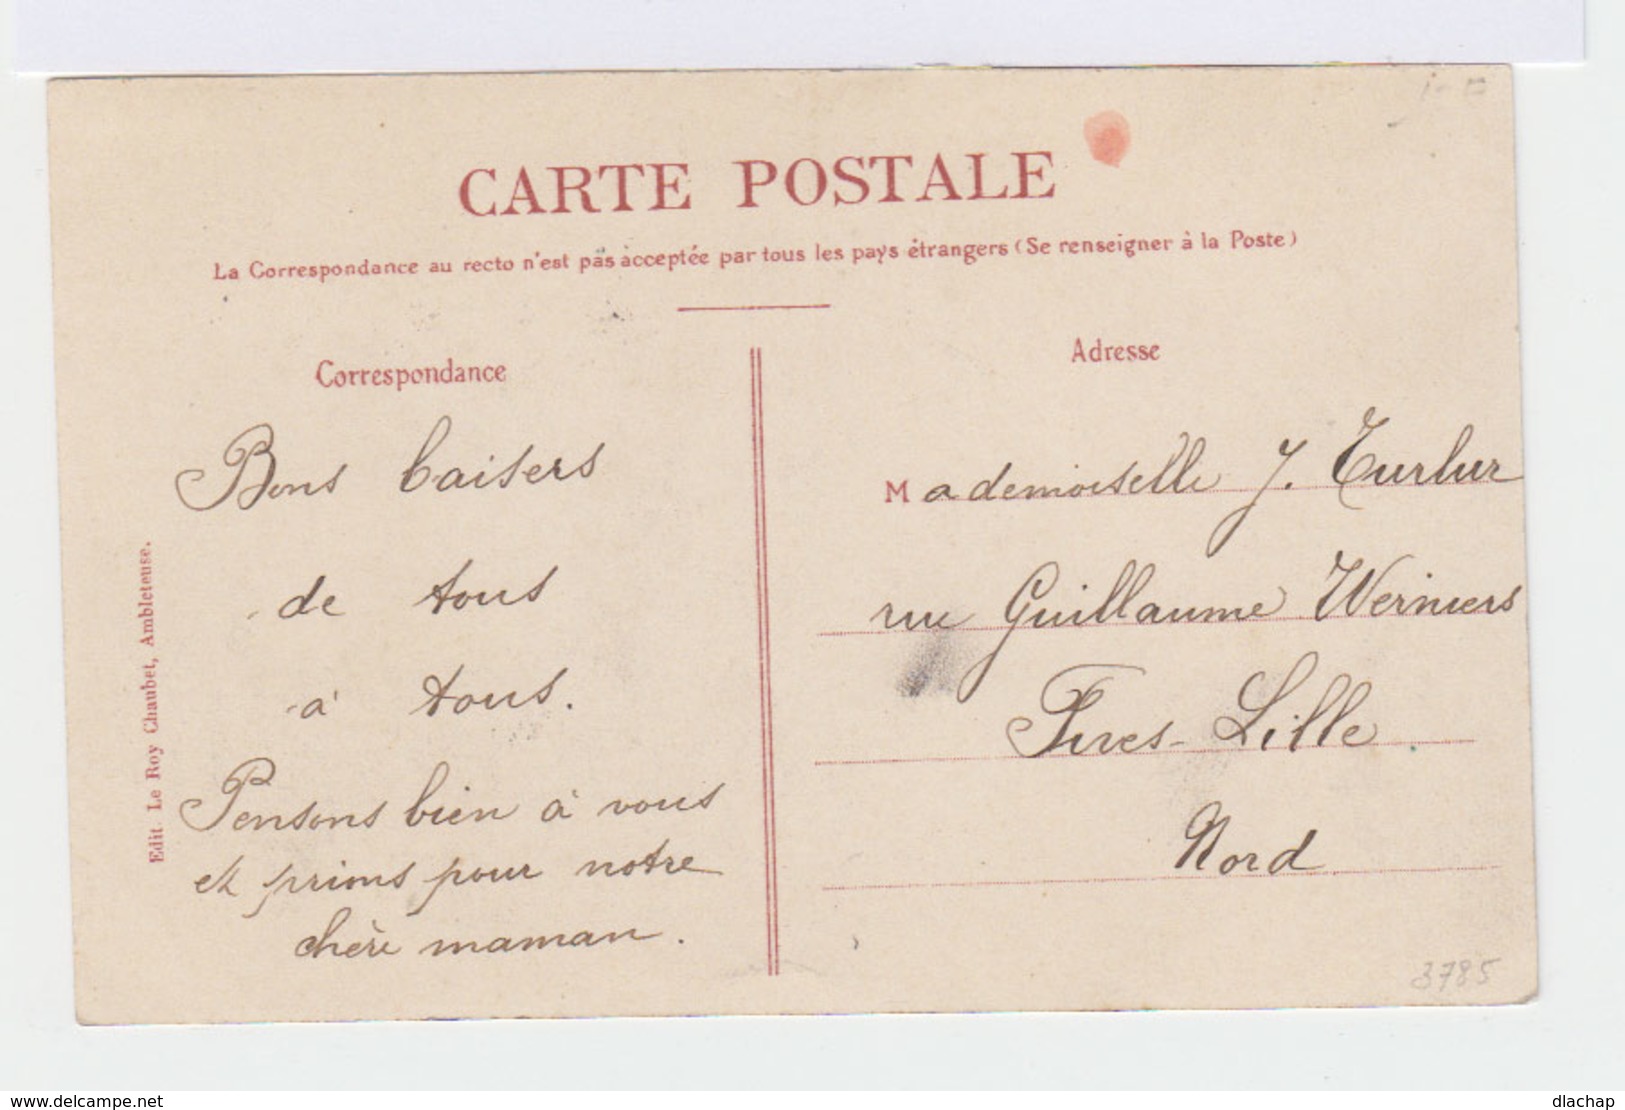 CARTE POSTALE
La Correspondance au recto n'est pas acceptée par tous les pays étrangers (Se renseigner à la Poste)
Correspondance
Bons baisers
de tous
à tous.
Pensons bien à vous
et prions pour notre
chère maman.
Adresse
Mademoiselle J. Turlur
rue Guillaume Werniers
Fives-Lille
Nord
Edit. Le Roy Chaubet, Ambleteuse.
3785
www.delcampe.net
dlachap